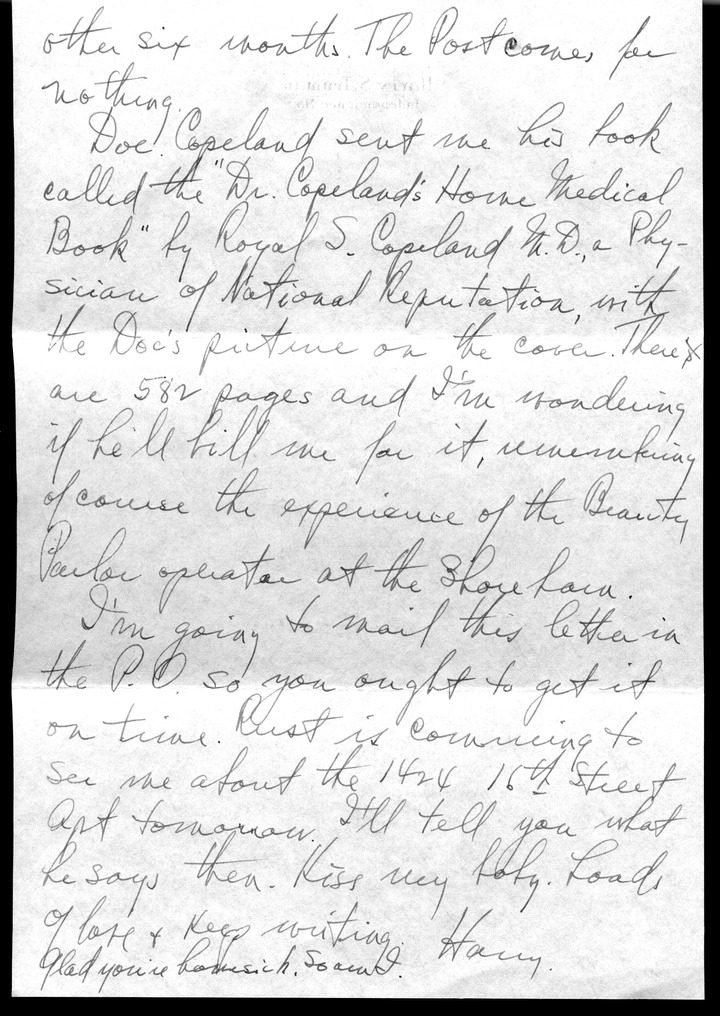 other six months. The Post comes for
nothing.
Doc. Copeland sent me his book
called the "Dr. Copeland's Home Medical
Book" by Royal S. Copeland M.D., a Phy-
sician of National Reputation, with
the Doc's picture on the cover. There
are 582 pages and I'm wondering
if he'll bill me for it, remembering
of course the experience of the Beauty
Parlor operator at the Shoreham.
I'm going to mail this letter in
the P.O. so you ought to get it
on time. Rust is comming to
see me about the 1424 16th Street
Apt tomorrow. I'll tell you what
he says then. Kiss my baby. Loads
of love + keep writing. Harry.
Glad you're homesick. So am I.